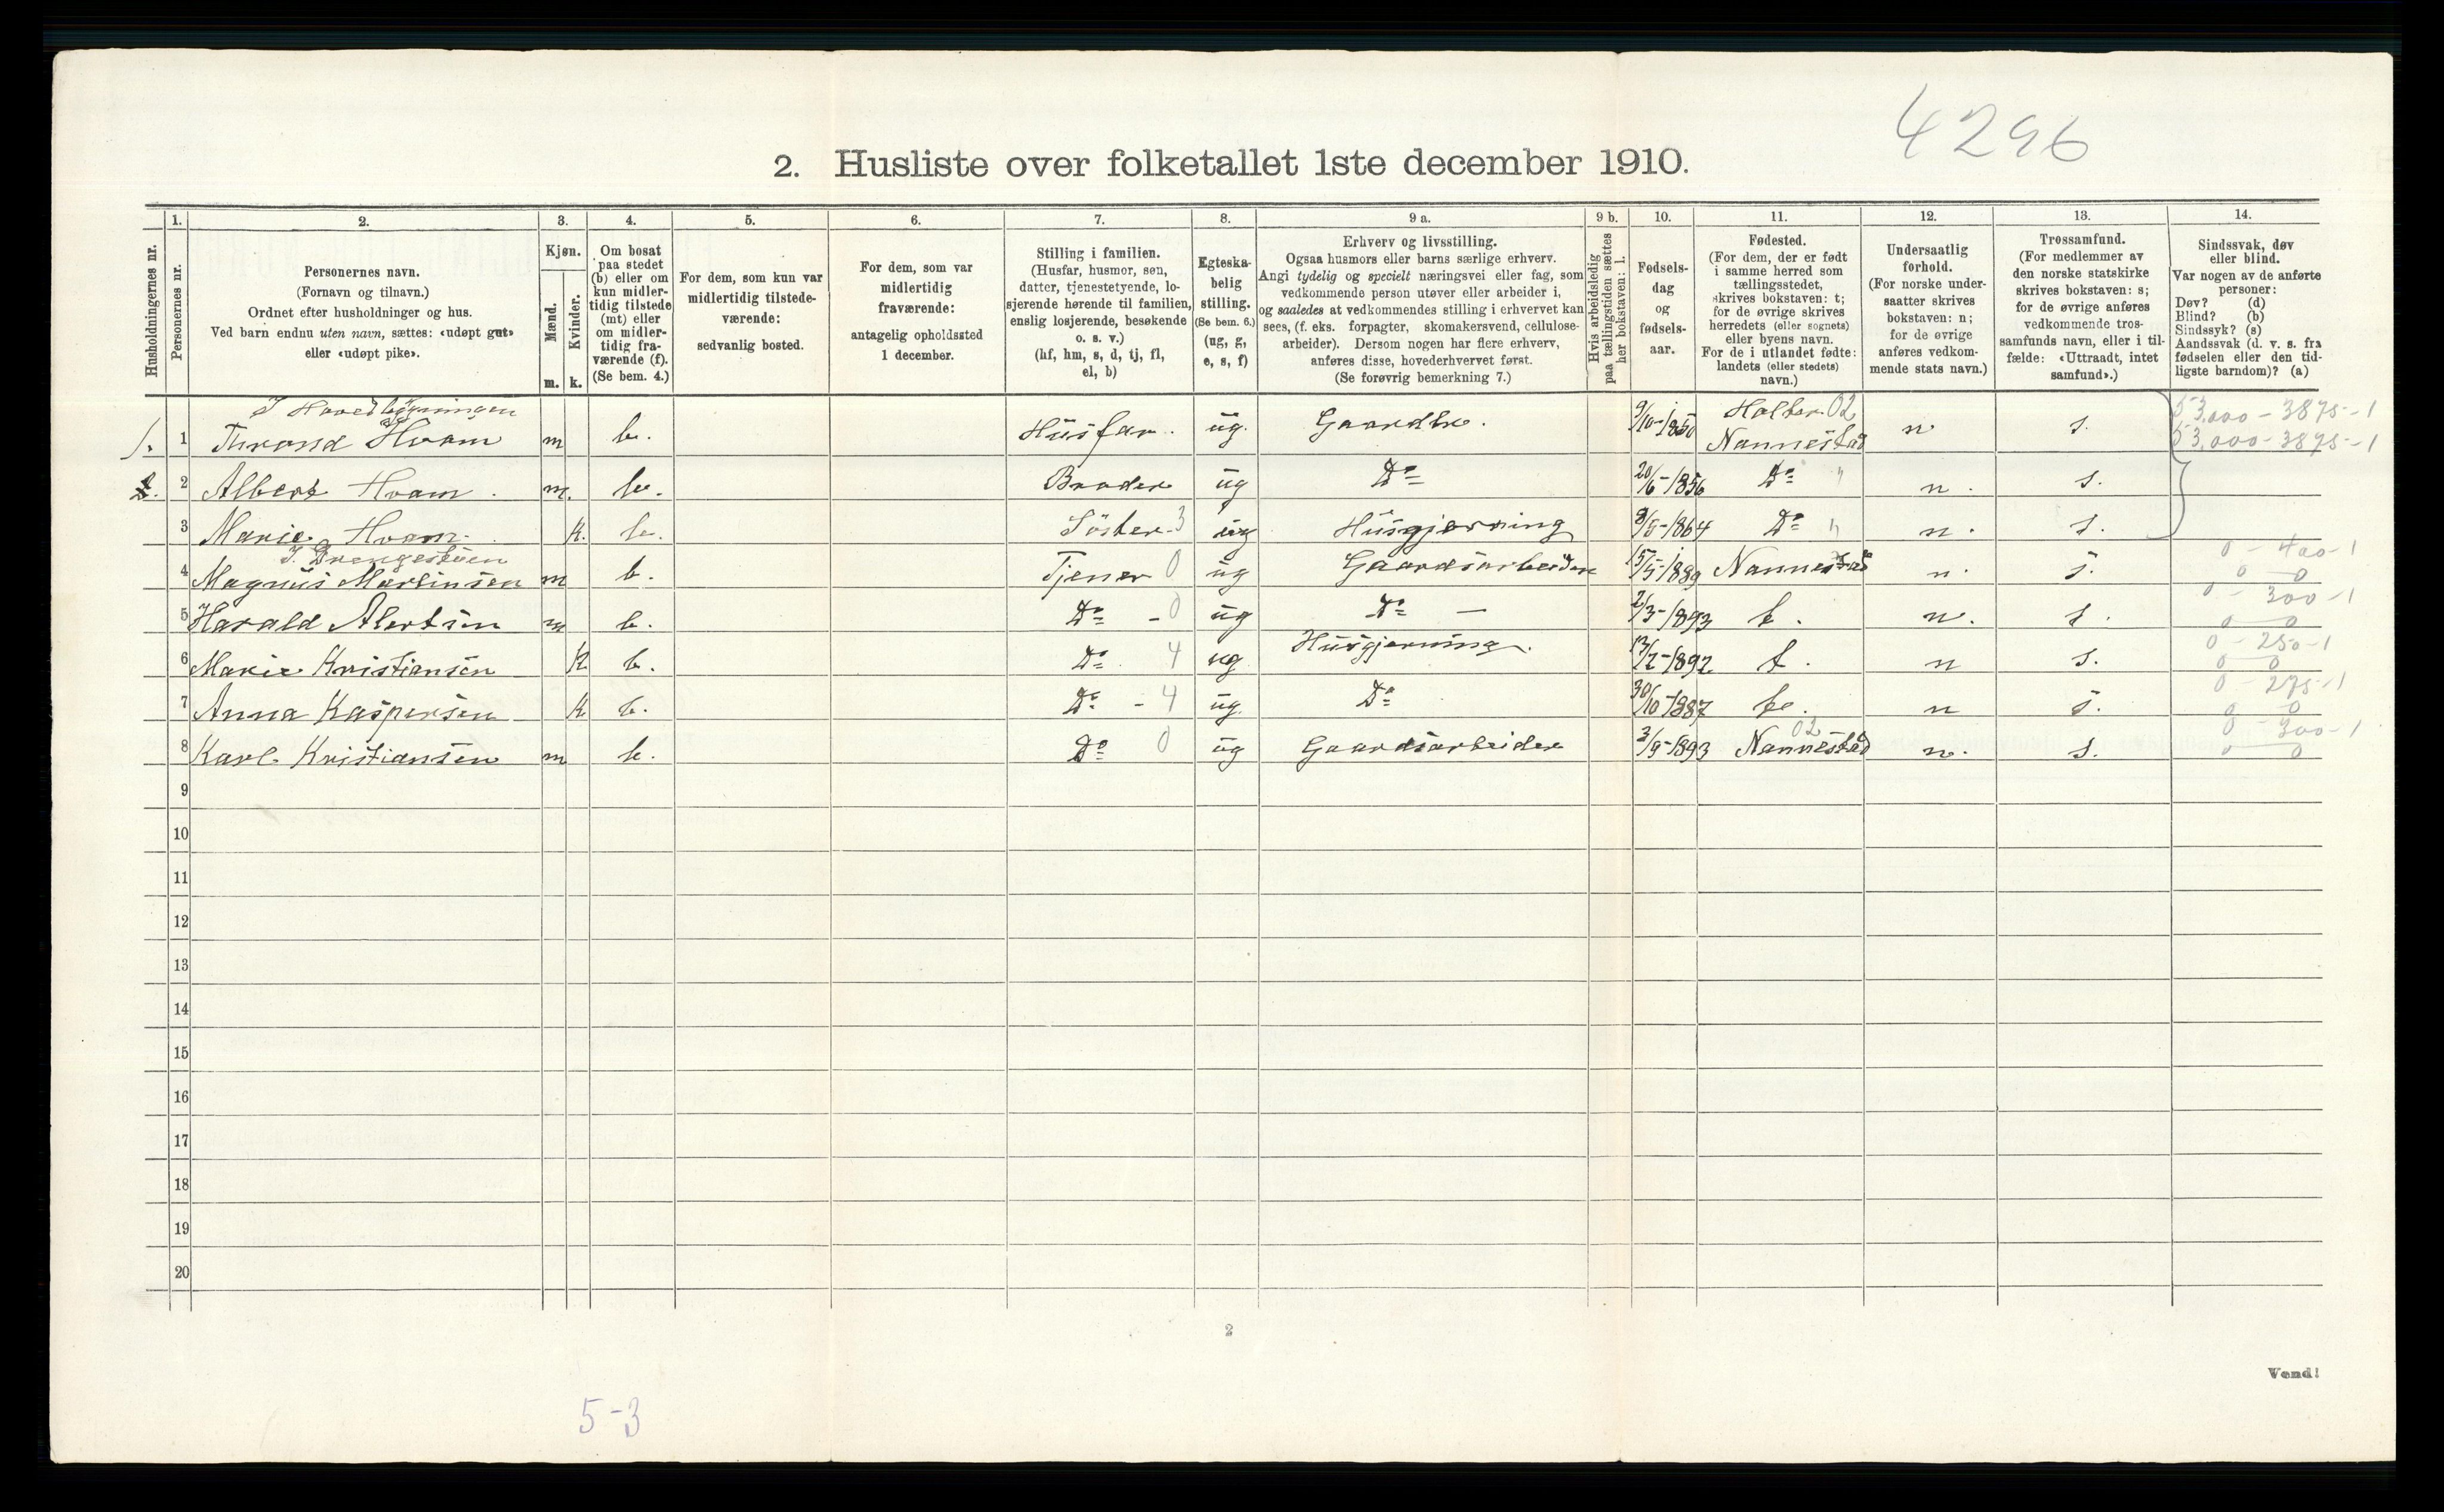 4296
2. Husliste over folketallet 1ste december 1910.
1. 2. 3. 4. 5. 6. 7. 8. 9 a. 9 b. 10. 11. 12. 13. 14.
Husholdningernes nr.
Personernes nr.
Personernes navn.
(Fornavn og tilnavn.)
Ordnet efter husholdninger og hus.
Ved barn endnu uten navn, sættes: «udøpt gut»
eller «udøpt pike».
Kjøn.
Mænd.
Kvinder.
m. k.
Om bosat
paa stedet
(b) eller om
kun midler-
tidig tilstede
(mt) eller
om midler-
tidig fra-
værende (f).
(Se bem. 4.)
For dem, som kun var
midlertidig tilstede-
værende:
sedvanlig bosted.
For dem, som var
midlertidig
fraværende:
antagelig opholdssted
1 december.
Stilling i familien.
(Husfar, husmor, søn,
datter, tjenestetyende, lo-
sjerende hørende til familien,
enslig losjerende, besøkende
o. s. v.)
(hf, hm, s, d, tj, fl,
el, b)
Egteska-
belig
stilling.
(Se bem. 6.)
(ug, g,
e, s, f)
Erhverv og livsstilling.
Ogsaa husmors eller barns særlige erhverv.
Angi tydelig og specielt næringsvei eller fag, som
vedkommende person utøver eller arbeider i,
og saaledes at vedkommendes stilling i erhvervet kan
sees, (f. eks. forpagter, skomakersvend, cellulose-
arbeider). Dersom nogen har flere erhverv,
anføres disse, hovederhvervet først.
(Se forøvrig bemerkning 7.)
Hvis arbeidsledig
paa tællingstiden sættes
her bokstaven: l.
Fødsels-
dag
og
fødsels-
aar.
Fødested.
(For dem, der er født
i samme herred som
tællingsstedet,
skrives bokstaven: t;
for de øvrige skrives
herredets (eller sognets)
eller byens navn.
For de i utlandet fødte:
landets (eller stedets)
navn.)
Undersaatlig
forhold.
(For norske under-
saatter skrives
bokstaven: n;
for de øvrige
anføres vedkom-
mende stats navn.)
Trossamfund.
(For medlemmer av
den norske statskirke
skrives bokstaven: s;
for de øvrige anføres
vedkommende tros-
samfunds navn, eller i til-
fælde: «Uttraadt, intet
samfund».)
Sindssvak, døv
eller blind.
Var nogen av de anførte
personer:
Døv? (d)
Blind? (b)
Sindssyk? (s)
Aandssvak (d. v. s. fra
fødselen eller den tid-
ligste barndom)? (a)
I Hovedbygningen
1. 1 Thrond Hvam m b. Husfar. ug. Gaardbr. 9/10-1850 Holter 02 Nannestad n s. 53,000-3875-1
53,000-3875-1
2 Albert Hvam. m. b. Broder ug Do 20/6-1856 Do " n. s.
3 Marie Hvam. K. b. Söster 3 ug Husgjerning 8/5-1864 Do " n. s.
I Drengestuen
4 Magnus Martinsen m b. Tjener 0 ug Gaardsarbeider 15/5-1889 Nannestad n. s. 0-400-1
0 0
5 Harald Albertsen m b. Do - 0 ug Do 2/3-1893 t. n. s. 0-300-1
0 0
6 Marie Kristiansen K b. Do 4 ug Husgjerning. t. n s. 0-250-1
0 0
7 Anna Kaspersen K b. Do - 4 ug. Do 30/10-1887 t. n s. 0-275-1
0 0
8 Karl Kristiansen m b. Do 0 ug Gaardsarbeider 3/9-1893 02 Nannestad n. s. 0-300-1
0 0
9
10
11
12
13
14
15
16
17
18
19
20
2
Vend!
5-3